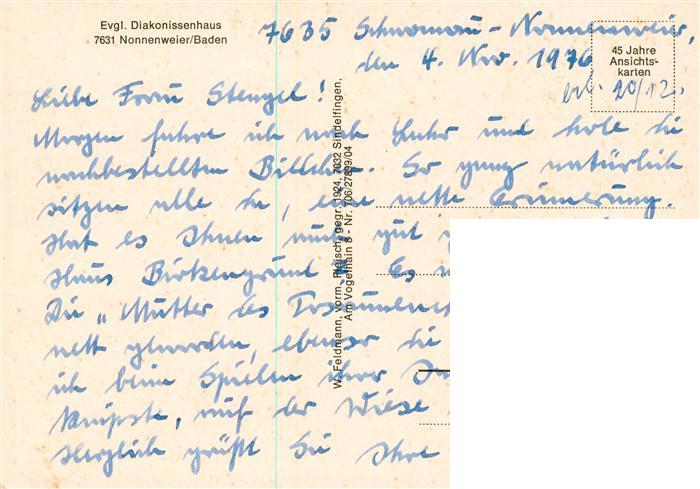 Evgl. Diakonissenhaus
7631 Nonnenweier/Baden
45 Jahre
Ansichts-
karten
7635 Schwanau-Nonnenweier,
den 4. Nov. 1976
20/12.
Liebe Frau Stengel!
Morgen fahre ich nach Lahr und hole die
nachbestellten Bildchen. So ganz natürlich
sitzen alle da, eine nette Erinnerung.
Hat es Ihnen auch gut
Haus Birkengrund Es
Die „Mutter des
nett geworden, ebenso die
ich beim Spielen ihrer
knipste, auf der Wiese
Herzlich grüßt Sie Ihre
W. Feldmann, vorm. Fleisch, gegr. 1924, 7032 Sindelfingen,
Am Vogelhain 8 · Nr. 706/27899/04